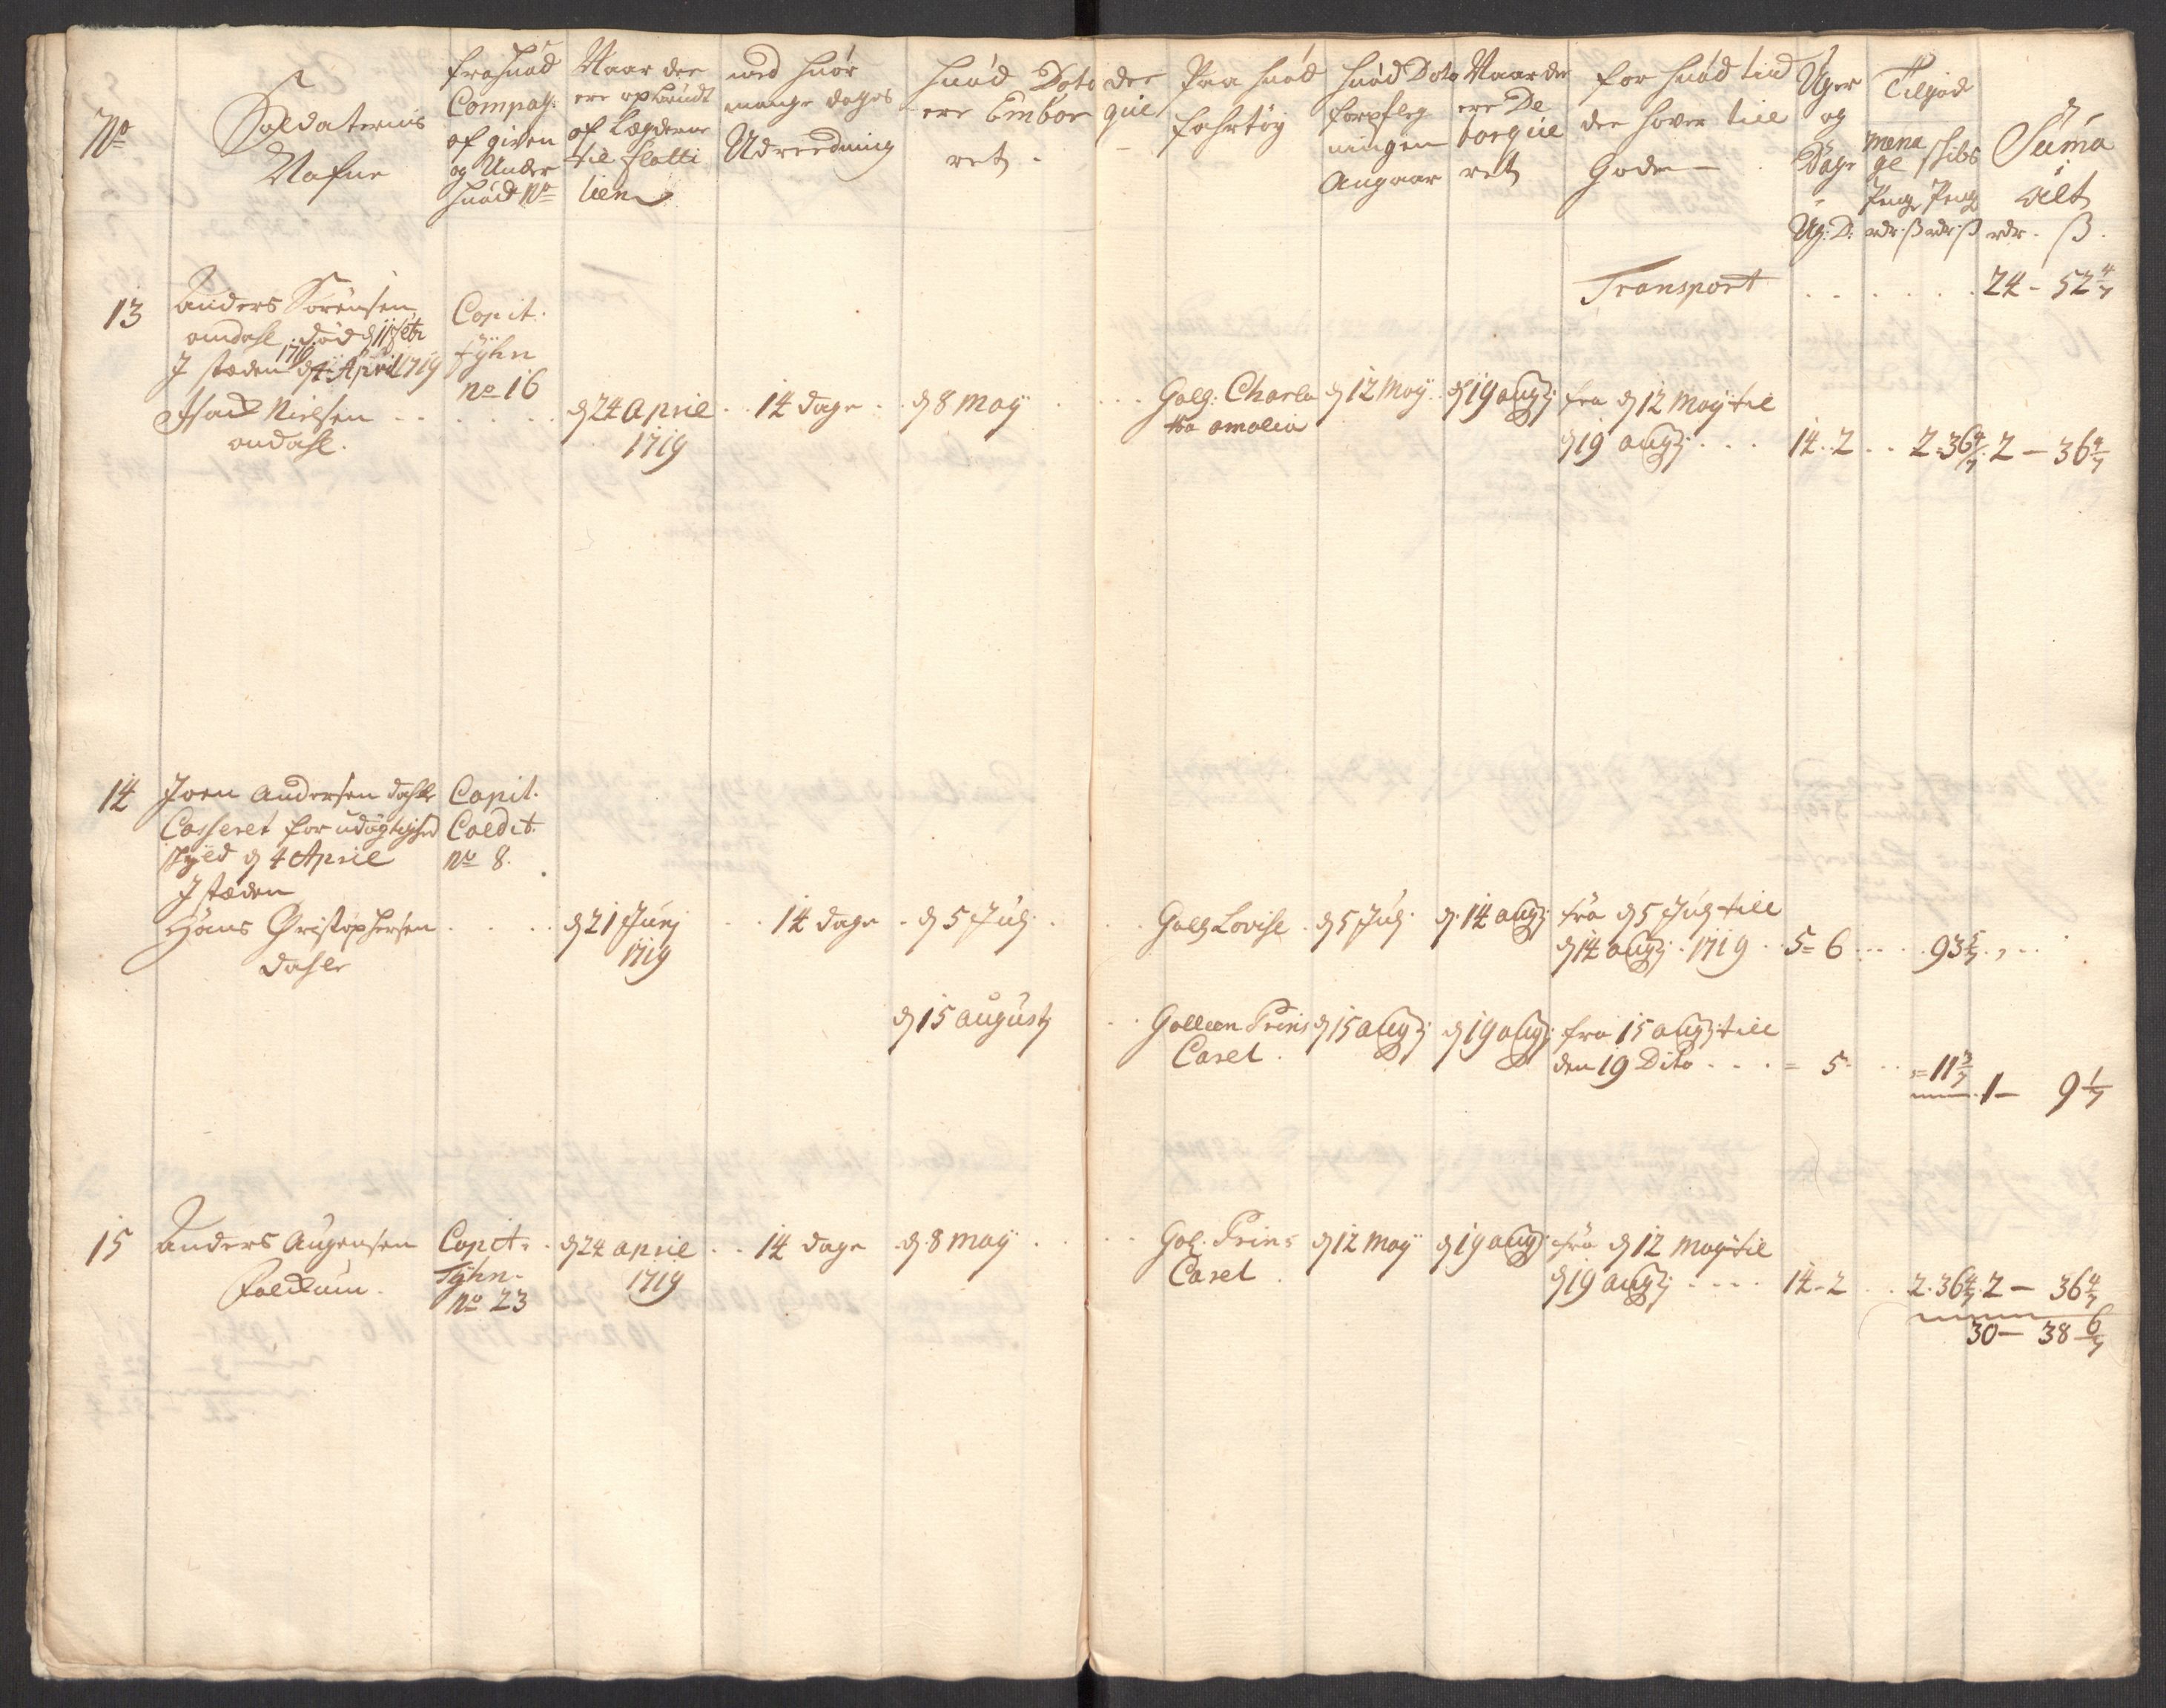 No
Soldaternis
Nafne
fra huad
Compag:
af given
og Under
huad No
Naar dee
ere opbrudt
af Lægderne
til flotti
lien
med huor
mange dages
Udreedning
huad Dato dee
ere Embar que
ret
Paa huad
fahrtøy
huad Dato
forpfleg
ningen
Angaar
Naar de
ere De
barque
ret
for huad tid
dee hover till
Gode
Uger
og
Dage
Ug: D:
Tilgod
mena
ge
Penge
rdr. ß
skibs
Penge
rdr. ß
Suma
vilt
rdr. ß.
Transport . . . . . . 24 - 52 4/7
13 Anders Sørensen
omdahl død d 11 febr
1719
I stæden d 4 April 1719
Isack Nielsen
omdahl.
Capit.
Tÿhn
no 16
d 24 April
1719
14 dage
d 8 maÿ
Galg: Charlo
tta amalia
d 12 Maÿ
d 19 augj
fra d 12 Maÿ til
d 19 augj
14. 2
2. 36 4/7
2 - 36 4/7
14 Joen Andersen dahle
Casseret for udøgtighed
skyld d 4 April
I stæden
Hans Christophersen
dahle
Capit.
Coldit.
No 8.
d 21 Junj
1719
14 dage
d 5 Julj
Galg Lovise
d 5 Julj
d 14 augj
fra d 5 Julj till
d 14 augj. 1719
5 = 6
93 5/7
d 15 augustj
Galleen Prins
Carel
d 15 augj
d 19 augj
fra 15 augj till
den 19 Dito
= 5
= 11 3/7
1 - 9 1/7
15 Anders Augensen
Falckum
Capit.
Tÿhn.
No 23
d 24 april
1719
14 dage
d 8 maÿ
Gal. Prins
Carel
d 12 Maÿ
d 19 augj
fra d 12 Maÿ til
d 19 augj
14 - 2
2. 36 4/7
2 - 36 4/7
30 - 38 6/7